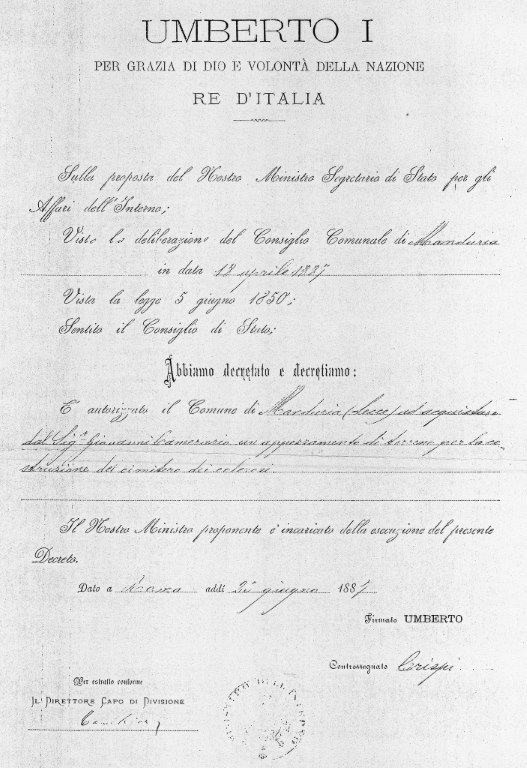 UMBERTO I
PER GRAZIA DI DIO E VOLONTÀ DELLA NAZIONE
RE D'ITALIA
Sulla proposta del Nostro Ministro Segretario di Stato per gli
Affari dell'Interno;
Vista la deliberazione del Consiglio Comunale di Manduria
in data 18 aprile 1887
Vista la legge 5 giugno 1850;
Sentito il Consiglio di Stato;
Abbiamo decretato e decretiamo:
È autorizzato il Comune di Manduria (Lecce) ad acquistare
dal Sigr Giovanni Camerario un appezzamento di terreno per la co-
struzione del cimitero dei colerosi.
Il Nostro Ministro proponente è incaricato della esecuzione del presente
Decreto.
Dato a addì giugno 1887
Firmato UMBERTO
Controsegnato Crispi
Per estratto conforme
IL DIRETTORE CAPO DI DIVISIONE
MINISTERO DELL'INTERNO